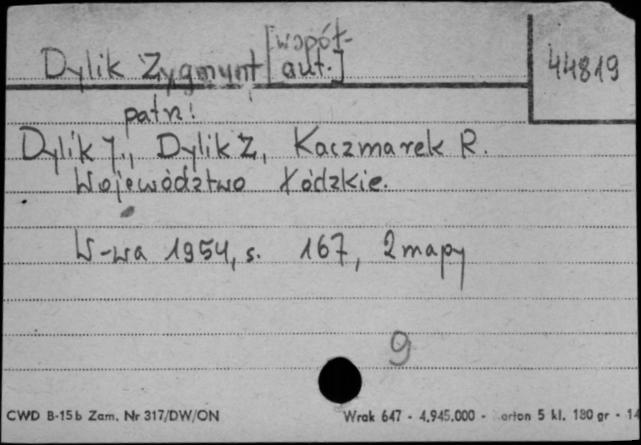 Dylik Zygmunt [współ-
aut.]
44819
patrz:
Dylik J., Dylik Z., Kaczmarek R.
Województwo Łódzkie.
W-wa 1954, s. 167, 2 mapy
9
CWD B-15b Zam. Nr 317/DW/ON
Wrak 647 - 4.945.000 - arton 5 kl. 180 gr - 14